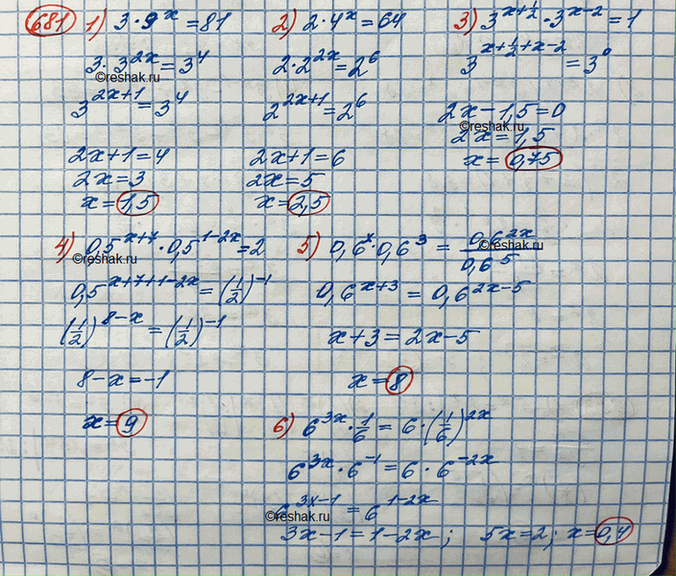 681 1) 3·9^x = 81
3·3^{2x} = 3^4
©reshak.ru
3^{2x+1} = 3^4
2x+1=4
2x=3
x=1,5
2) 2·4^x = 64
2·2^{2x} = 2^6
2^{2x+1} = 2^6
2x+1=6
2x=5
x=2,5
3) 3^{x+1/2}·3^{x-2} = 1
3^{x+1/2+x-2} = 3^0
2x-1,5=0
©reshak.ru
2x=1,5
x=0,75
4) 0,5^{x+7}·0,5^{1-2x} = 2
©reshak.ru
0,5^{x+7+1-2x} = (1/2)^{-1}
(1/2)^{8-x} = (1/2)^{-1}
8-x=-1
x=9
5) 0,6^x·0,6^3 = 0,6^{2x}/0,6^5
©reshak.ru
0,6^{x+3} = 0,6^{2x-5}
x+3=2x-5
x=8
6) 6^{3x}·1/6 = 6·(1/6)^{2x}
6^{3x}·6^{-1} = 6·6^{-2x}
6^{3x-1} = 6^{1-2x}
©reshak.ru
3x-1=1-2x; 5x=2; x=0,4